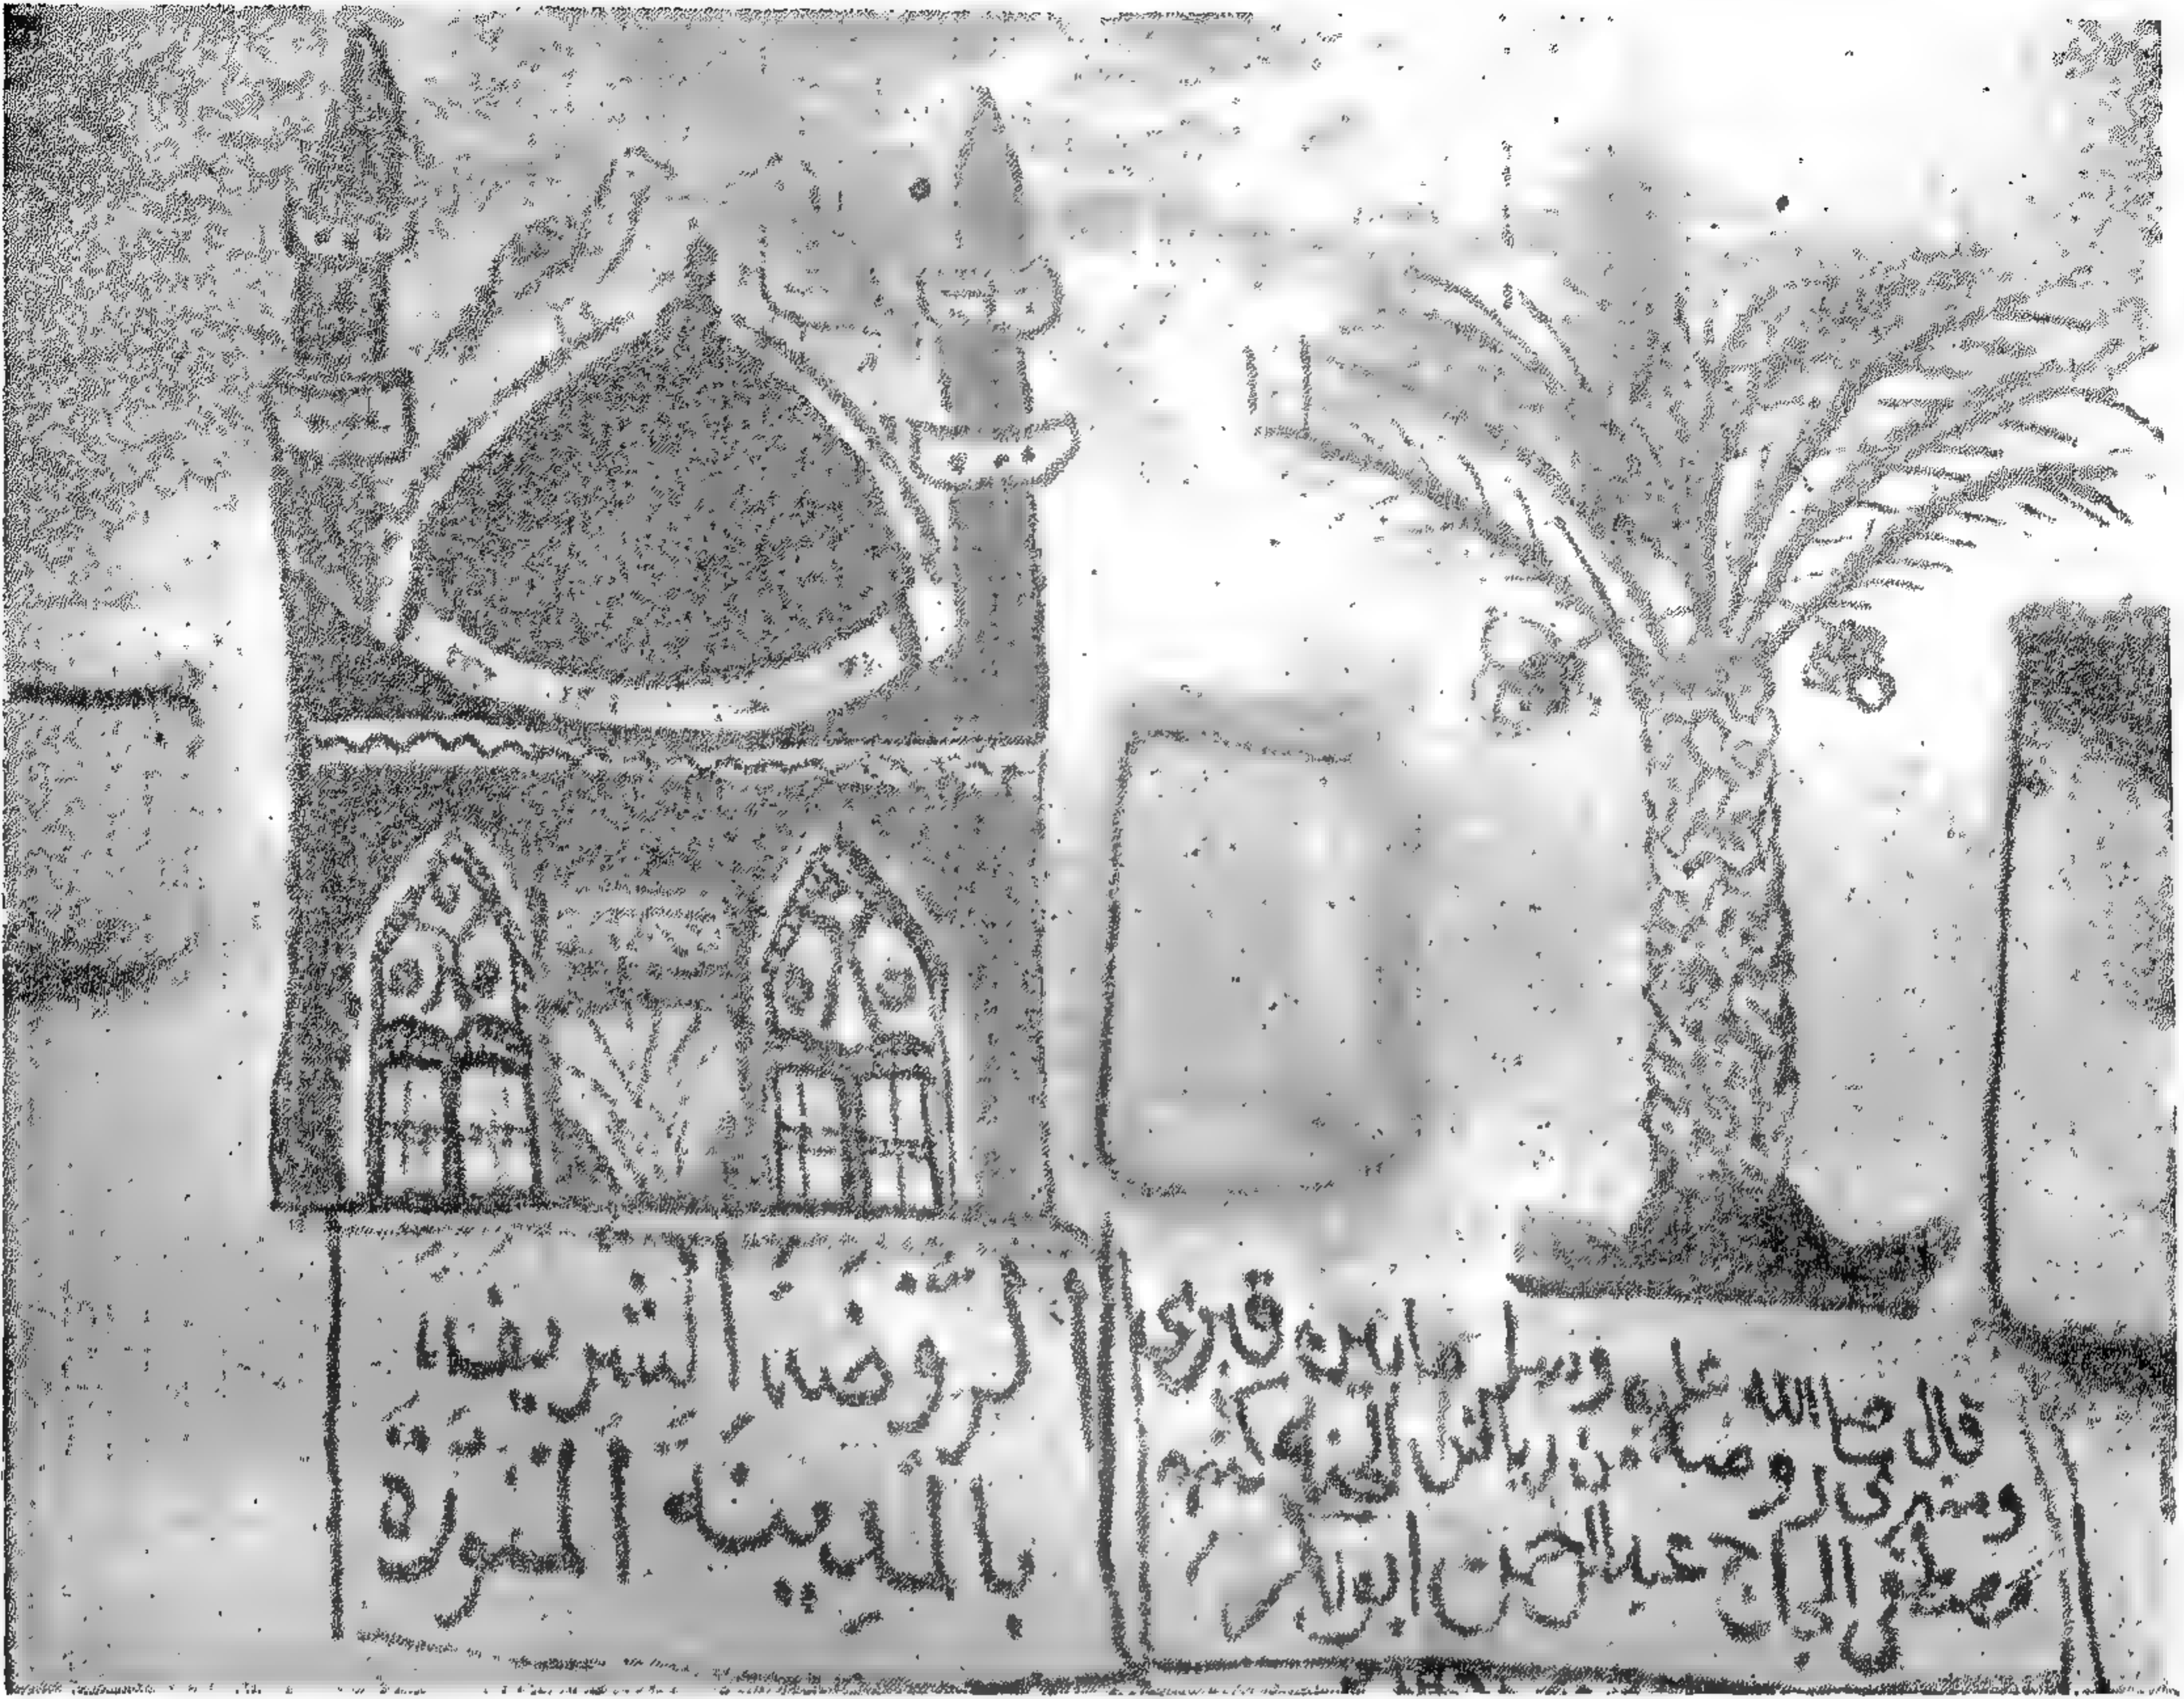 قال صلى الله عليه وسلم ما بين قبرى
ومنبرى روضة من رياض الجنة
الحاج عبد الرحمن
الروضة الشريفة
بالمدينة المنورة